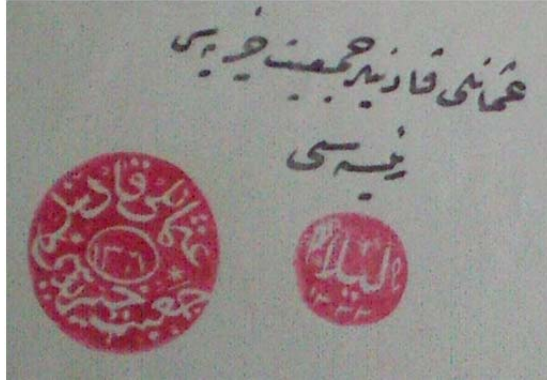 عثمانلى قادينلر جمعيت خيريه سى
رئيسه سى
عثمانلى قادينلر
جمعيت خيريه سى
ليلا
١٣٣٢